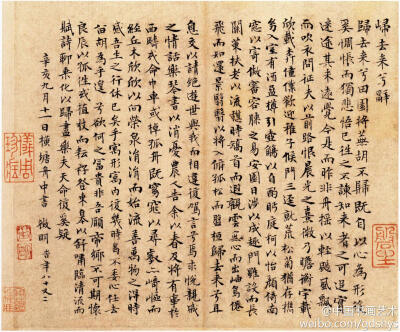 歸去來兮辭
歸去來兮田園將蕪胡不歸既自以心為形役
奚惆悵而獨悲悟已往之不諫知來者之可追實
迷途其未遠覺今是而昨非舟搖搖以輕颺風飄飄
而吹衣問征夫以前路恨晨光之熹微乃瞻衡宇載
欣載奔僮僕歡迎稚子候門三逕就荒松菊猶存携
幼入室有酒盈樽引壺觴以自酌眄庭柯以怡顏倚南
窓以寄傲審容膝之易安園日涉以成趣門雖設而長
關策扶老以流憩時矯首而遐觀雲無心而出岫鳥倦
飛而知還景翳翳以將入撫孤松而盤桓歸去來兮且
息交以請絕遊世與我而相違復駕言兮焉求悅親戚
之情話樂琴書以消憂農人告余以春及將有事於
西疇或命巾車或棹孤舟既窈窕以尋壑亦崎嶇而
經丘木欣欣以向榮泉涓涓而始流善萬物之得時
感吾生之行休已矣乎寓形宇內復幾時曷不委心任去
留胡為乎遑遑兮欲何之富貴非吾願帝鄉不可期懷
良辰以孤往或植杖而耘耔登東皋以舒嘯臨清流而
賦詩聊乘化以歸盡樂夫天命復奚疑
辛亥九月十一日橫塘舟中書 徵明 年八十又二
@中国书画艺术